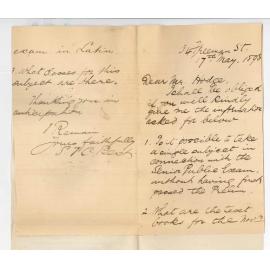 36 Freeman St.
17th May, 1898
Dear Mr. Hodge,
I shall be obliged
if you will kindly
give me the information
asked for below
1. Is it possible to take
a single subject in
connection with the
Senior Public Exam.
without having first
passed the Prelim.
2. What are the text
books for the Nov.
exam in Latin
3. What classes for this
subject are there.
Thanking you in
anticipation
I Remain
yours faithfully